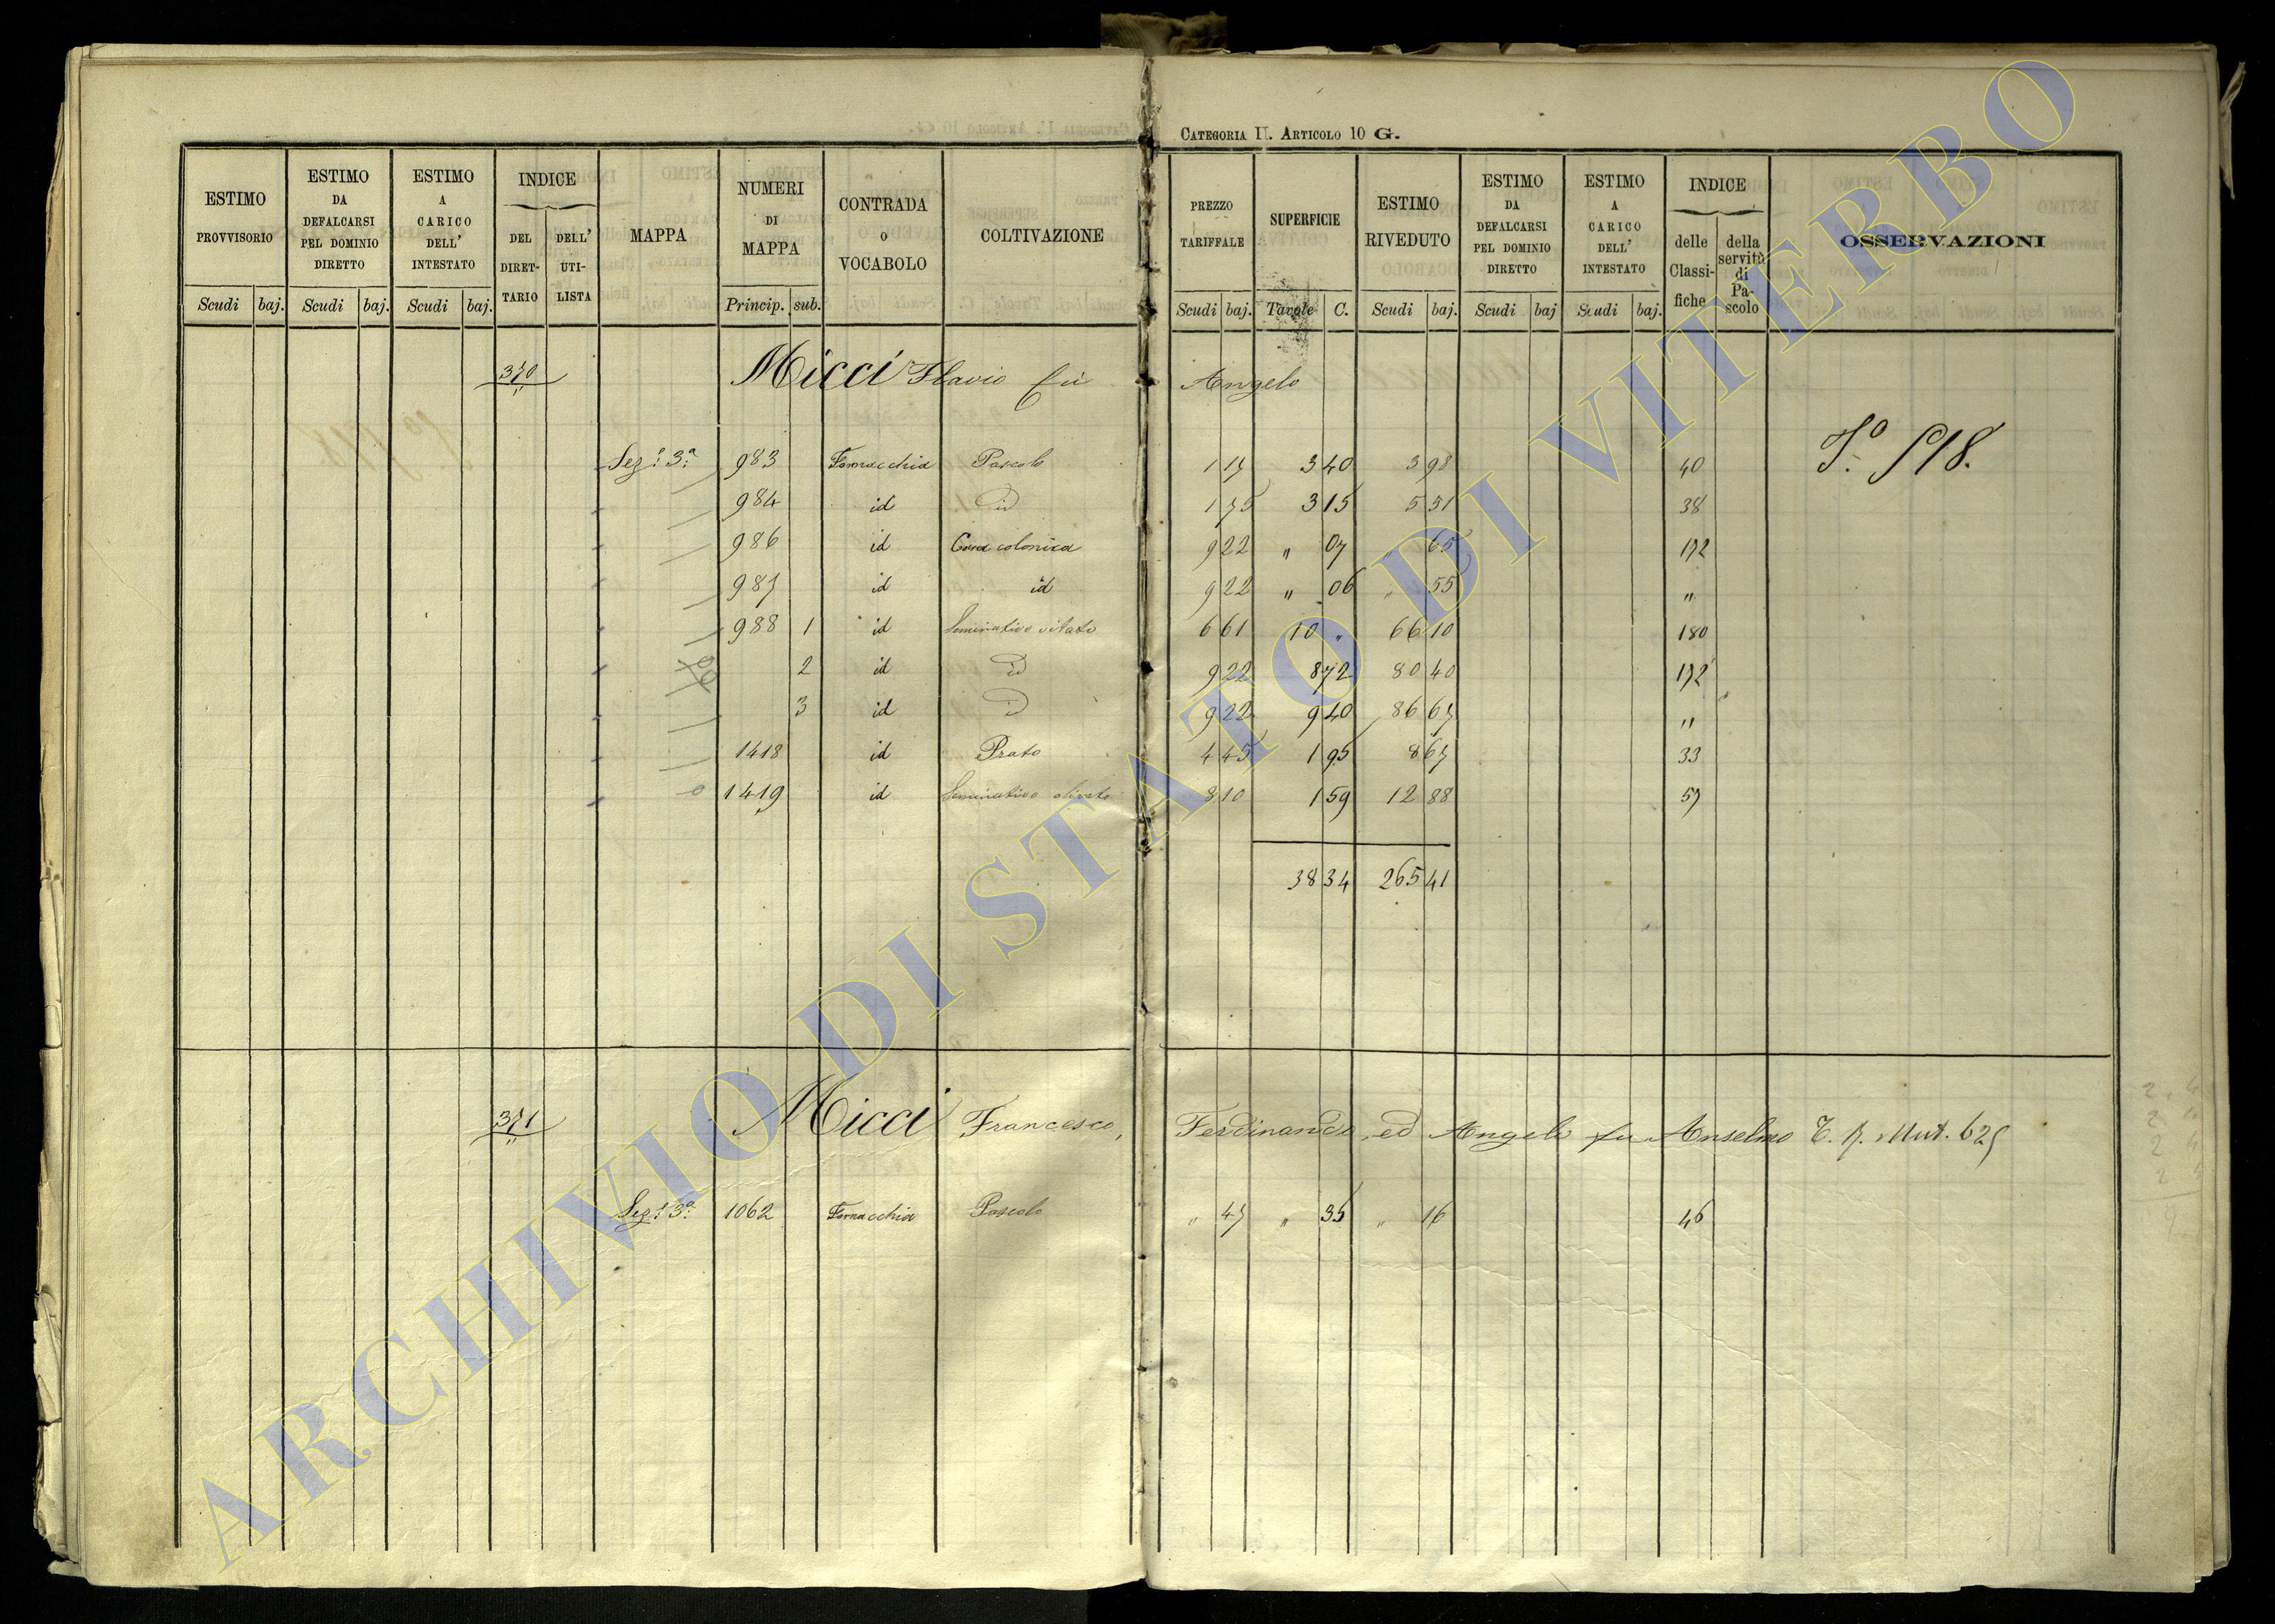 CATEGORIA II. ARTICOLO 10 G.
ESTIMO PROVVISORIO Scudi baj. | ESTIMO DA DEFALCARSI PEL DOMINIO DIRETTO Scudi baj. | ESTIMO A CARICO DELL' INTESTATO Scudi baj. | INDICE DEL DIRET-TARIO | DELL' UTI-LISTA | MAPPA | NUMERI DI MAPPA Princip. sub. | CONTRADA O VOCABOLO | COLTIVAZIONE | PREZZO TARIFFALE Scudi baj. | SUPERFICIE Tavole C. | ESTIMO RIVEDUTO Scudi baj. | ESTIMO DA DEFALCARSI PEL DOMINIO DIRETTO Scudi baj | ESTIMO A CARICO DELL' INTESTATO Scudi baj. | INDICE delle Classi-fiche | della servitù di Pa-scolo | OSSERVAZIONI
370 Micci Flavio fu Angelo
Sez: 3ª 983 Fornacchia Pascolo 1 17 3 40 3 98 40 518.
984 id id 1 75 3 15 5 51 38
986 id Casa colonica 9 22 " 07 " 65 172
987 id id 9 22 " 06 " 55 "
988 1 id Seminativo vitato 6 61 10 " 66 10 180
2 id id 9 22 8 72 80 40 172
3 id id 9 22 9 40 86 67 "
1418 id Prato 4 45 1 95 8 67 33
1419 id Seminativo olivato 8 10 1 59 12 88 57
38 34 265 41
371 Micci Francesco, Ferdinando, ed Angelo fu Anselmo Mut. 625
Sez: 3ª 1062 Fornacchia Pascolo " 47 " 35 " 16 46
ARCHIVIO DI STATO DI VITERBO